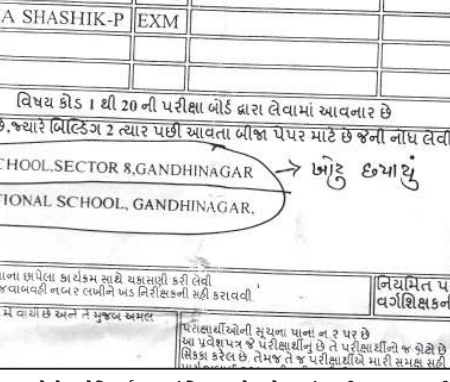 A SHASHIK-P EXM
વિષય કોડ 1 થી 20 ની પરીક્ષા બોર્ડ દ્વારા લેવામાં આવનાર છે
છે,જ્યારે બિલ્ડિંગ 2 ત્યાર પછી આવતા બીજા પેપર માટે છે જેની નોંધ લેવી
CHOOL,SECTOR 8,GANDHINAGAR → ખોટુ છપાયું
IONAL SCHOOL, GANDHINAGAR,
ના છાપેલા કાર્યક્રમ સાથે ચકાસણી કરી લેવી
જવાબવહી નંબર લખીને ખંડ નિરીક્ષકની સહી કરાવવી.
નિયમિત પ
વર્ગશિક્ષકન
મે વાંચી છે અને તે મુજબ અમલ
પરીક્ષાર્થીઓની સૂચના પાના નં ૨ પર છે
આ પ્રવેશપત્ર જે પરીક્ષાર્થીનું છે તે પરીક્ષાર્થીનો જ ફોટો છે
સિક્કા કરેલ છે. તેમજ તે જ પરીક્ષાર્થીએ મારી સમક્ષ સહી